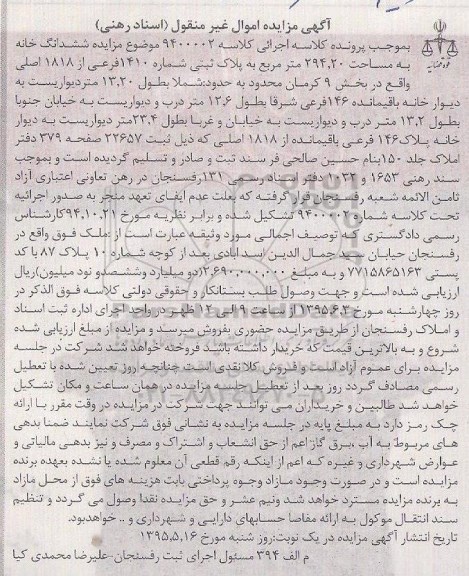 آگهی مزایده اموال غیر منقول (اسناد رهنی)
بموجب پرونده کلاسه اجرائی کلاسه ۹۴۰۰۰۰۲ موضوع مزایده ششدانگ خانه
به مساحت ۲۹۴.۲۰ متر مربع به پلاک ثبتی شماره ۱۴۱۰فرعی از ۱۸۱۸ اصلی
واقع در بخش ۹ کرمان محدود به حدود:شملا بطول ۱۳.۲۰ متردیواریست به
دیوار خانه باقیمانده ۱۴۶فرعی شرقا بطول ۱۲.۶ متر درب و دیواریست به خیابان جنوبا
بطول ۱۳.۲ متر درب و دیواریست به خیابان و غربا بطول ۲۳.۴متر دیواریست به دیوار
خانه پلاک۱۴۶ فرعی باقیمانده از ۱۸۱۸ اصلی که ذیل ثبت ۲۲۶۵۷ صفحه ۳۷۹ دفتر
املاک جلد ۱۵۰بنام حسین صالحی فر سند ثبت و صادر و تسلیم گردیده است و بموجب
سند رهنی ۱۶۵۳ و ۱۰۳۲ دفتر اسناد رسمی ۱۳۱رفسنجان در رهن تعاونی اعتباری آزاد
ثامن الائمه شعبه رفسنجان قرار گرفته که بعلت عدم ایفای تعهد منجر به صدور اجرائیه
تحت کلاسه شماره ۹۴۰۰۰۰۲ تشکیل شده و برابر نظریه مورخ ۹۴.۱۰.۲۱کارشناس
رسمی دادگستری که توصیف اجمالی مورد وثیقه عبارت است از :ملک فوق واقع در
رفسنجان خیابان سید جمال الدین اسدابادی بعد از کوچه شماره ۱۰ پلاک ۸۷ با کد
پستی ۷۷۱۵۸۶۵۱۶۳ و به مبلغ ۲.۶۹۰.۰۰۰.۰۰۰(دو میلیارد وششصدو نود میلیون)ریال
ارزیابی شده است و جهت وصول طلب بستانکار و حقوقی دولتی کلاسه فوق الذکر در
روز چهارشنبه مورخ ۱۳۹۵.۶.۳ از ساعت ۹ الی ۱۲ ظهر در واحد اجرای اداره ثبت اسناد
و املاک رفسنجان از طریق مزایده حضوری بفروش میرسد و مزایده از مبلغ ارزیابی شده
شروع و به بالاترین قیمت که خریدار داشته باشد فروخته خواهد شد شرکت در جلسه
مزایده برای عموم آزاد است و فروش کلا نقدی است چنانچه روز تعیین شده با تعطیل
رسمی مصادف گردد روز بعد از تعطیل جلسه مزایده در همان ساعت و مکان تشکیل
خواهد شد طالبین و خریداران می توانند جهت شرکت در مزایده در وقت مقرر با ارائه
چک رمز دارد به مبلغ پایه در جلسه مزایده به نشانی فوق شرکت نمایند ضمنا بدهی
های مربوط به آب ،برق گاز اعم از حق انشعاب و اشتراک و مصرف و نیز بدهی مالیاتی و
عوارض شهرداری و غیره که اعم از اینکه رقم قطعی آن معلوم شده یا نشده بعهده برنده
مزایده است و در صورت وجود مازاد وجوه پرداختی بابت هزینه های فوق از محل مازاد
به برنده مزایده مسترد خواهد شد ونیم عشر و حق مزایده نقدا وصول می گردد و تنظیم
سند انتقال موکول به ارائه مفاصا حسابهای دارایی و شهرداری و .. خواهدبود.
تاریخ انتشار آگهی مزایده در یک نوبت:روز شنبه مورخ ۱۳۹۵.۵.۱۶
م الف ۳۹۴ مسئول اجرای ثبت رفسنجان-علیرضا محمدی کیا